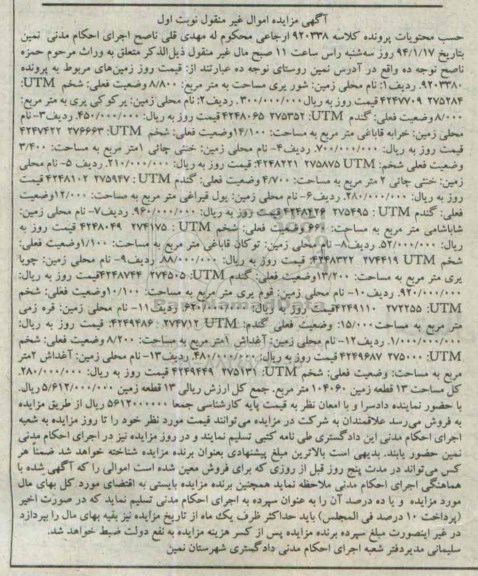 آگهی مزایده اموال غیر منقول نوبت اول
حسب محتویات پرونده کلاسه ۹۲۰۳۳۸ ارجاعی محکوم له مهدی قلی ناصح اجرای احکام مدنی نمین
بتاریخ ۹۴/۱/۱۷ روز سه‌شنبه راس ساعت ۱۱ صبح مال غیر منقول ذیل‌الذکر متعلق به وراث مرحوم حمزه
ناصح توجه ده واقع در آدرس نمین روستای توجه ده عبارتند از: قیمت روز زمین‌های مربوط به پرونده
۹۲۰۳۳۸۰. ردیف۱: نام محلی زمین: شور یری مساحت به متر مربع: ۸/۸۰۰ وضعیت فعلی: شخم UTM:
۲۷۵۲۸۴ ۴۲۴۷۷۰۹ قیمت روز به ریال ۳۰۰/۰۰۰/۰۰۰. ردیف۲: نام محلی زمین: پر کوکی یری به متر مربع:
۸/۰۰۰ وضعیت فعلی: گندم UTM: ۲۷۵۳۵۲ ۴۲۴۸۰۶۵ قیمت روز به ریال: ۴۵۰/۰۰۰/۰۰۰. ردیف۳- نام
محلی زمین: خرابه قاباغی متر مربع به مساحت: ۱۴/۱۰۰ وضعیت فعلی: شخم UTM: ۲۷۶۶۶۳ ۴۲۴۷۴۲۲
قیمت روز به ریال: ۷۰۰/۰۰۰/۰۰۰. ردیف۴- نام محلی زمین: ختی چائی ۱متر مربع به مساحت: ۳/۴۰۰
وضعیت فعلی شخم: UTM ۲۷۵۸۷۵ ۴۲۴۸۲۲۱: قیمت روز به ریال: ۲۱۰/۰۰۰/۰۰۰. ردیف ۵- نام محلی
زمین: ختی چائی ۲ متر مربع به مساحت: ۴/۷۰۰ وضعیت فعلی: گندم UTM: ۲۷۵۹۴۷ ۴۲۴۸۱۰۲ قیمت
روز به ریال: ۲۸۰/۰۰۰/۰۰۰. ردیف۶- نام محلی زمین: یول قیراغی متر مربع به مساحت: ۱۲/۰۰۰ وضعیت
فعلی: گندم UTM: ۲۷۵۴۹۵ ۴۲۴۸۴۲۶ قیمت روز به ریال: ۹۶۰/۰۰۰/۰۰۰. ردیف۷- نام محلی زمین:
شاباشامی متر مربع به مساحت: ۶۶۰ وضعیت فعلی: شخم UTM: ۲۷۴۱۷۵ ۴۲۴۸۰۴۹ قیمت روز به
ریال: ۵۲/۰۰۰/۰۰۰. ردیف۸- نام محلی زمین: توکان قاباغی متر مربع به مساحت: ۱/۱۰۰ وضعیت فعلی:
شخم UTM ۲۷۴۴۱۹ ۴۲۴۸۳۲۲: قیمت روز به ریال: ۸۸/۰۰۰/۰۰۰. ردیف۹- نام محلی زمین: جویا
یری متر مربع به مساحت: ۱۳/۲۰۰ وضعیت فعلی: گندم UTM: ۲۷۴۵۰۵ ۴۲۴۸۷۴۴ قیمت روز به ریال:
۹۲۰/۰۰۰/۰۰۰. ردیف۱۰- نام محلی زمین: قوم یری متر مربع به مساحت: ۱۰/۱۰۰ وضعیت فعلی: شخم
UTM: ۲۷۲۲۵۵ ۴۲۴۹۱۱۰ قیمت روز به ریال: ۶۳۰/۰۰۰/۰۰۰. ردیف۱۱- نام محلی زمین: قره زمی
متر مربع به مساحت: ۱۵/۰۰۰ وضعیت فعلی: گندم: UTM ۲۷۴۷۱۲ ۴۲۴۹۴۸۶: قیمت روز به ریال:
۱/۰۰۰/۰۰۰/۰۰۰. ردیف۱۲- نام محلی زمین: آغداش ۱متر مربع به مساحت: ۸/۲۰۰ وضعیت فعلی: شخم
UTM: ۲۷۵۰۰۰ ۴۲۴۹۶۸۷ قیمت روز به ریال: ۴۸۰/۰۰۰/۰۰۰. ردیف۱۳- نام محلی زمین: آغداش ۲متر
مربع به مساحت: وضعیت فعلی: شخم UTM: ۲۷۵۱۳۱ ۴۲۴۹۴۴۹ قیمت روز به ریال: ۲۸۰/۰۰۰/۰۰۰.
کل مساحت ۱۳ قطعه زمین ۱۰۴۰۶۰ متر مربع. جمع کل ارزش ریالی ۱۳ قطعه زمین ۵/۶۱۲/۰۰۰/۰۰۰ ریال.
با حضور نماینده دادسرا و با امعان نظر به قیمت پایه کارشناسی جمعا ۵۶۱۲۰۰۰۰۰۰ ریال از طریق مزایده
به فروش می‌رسد علاقمندان به شرکت در مزایده می‌توانند قیمت مورد نظر خود را تا روز مزایده به شعبه
اجرای احکام مدنی این دادگستری طی نامه کتبی تسلیم نمایند و در روز مزایده نیز در اجرای احکام مدنی
نمین حضور یابند. بدیهی است بالاترین مبلغ پیشنهادی بعنوان برنده مزایده شناخته خواهد شد ضمناً هر
کس می‌تواند در مدت پنج روز قبل از روزی که برای فروش معین شده است اموالی را که آگهی شده با
هماهنگی اجرای احکام مدنی ملاحظه نماید همچنین برنده مزایده بایستی به اقتضای مورد کل بهای مال
مورد مزایده و یا ده درصد آن را به عنوان سپرده به اجرای احکام مدنی تسلیم نماید که در صورت اخیر
(پرداخت ۱۰ درصد فی المجلس) باید حداکثر ظرف یک ماه از تاریخ مزایده نیز بقیه بهای مال را بپردازد
در غیر اینصورت مبلغ سپرده برنده مزایده پس از کسر هزینه مزایده به نفع دولت ضبط خواهد شد.
سلیمانی مدیردفتر شعبه اجرای احکام مدنی دادگستری شهرستان نمین